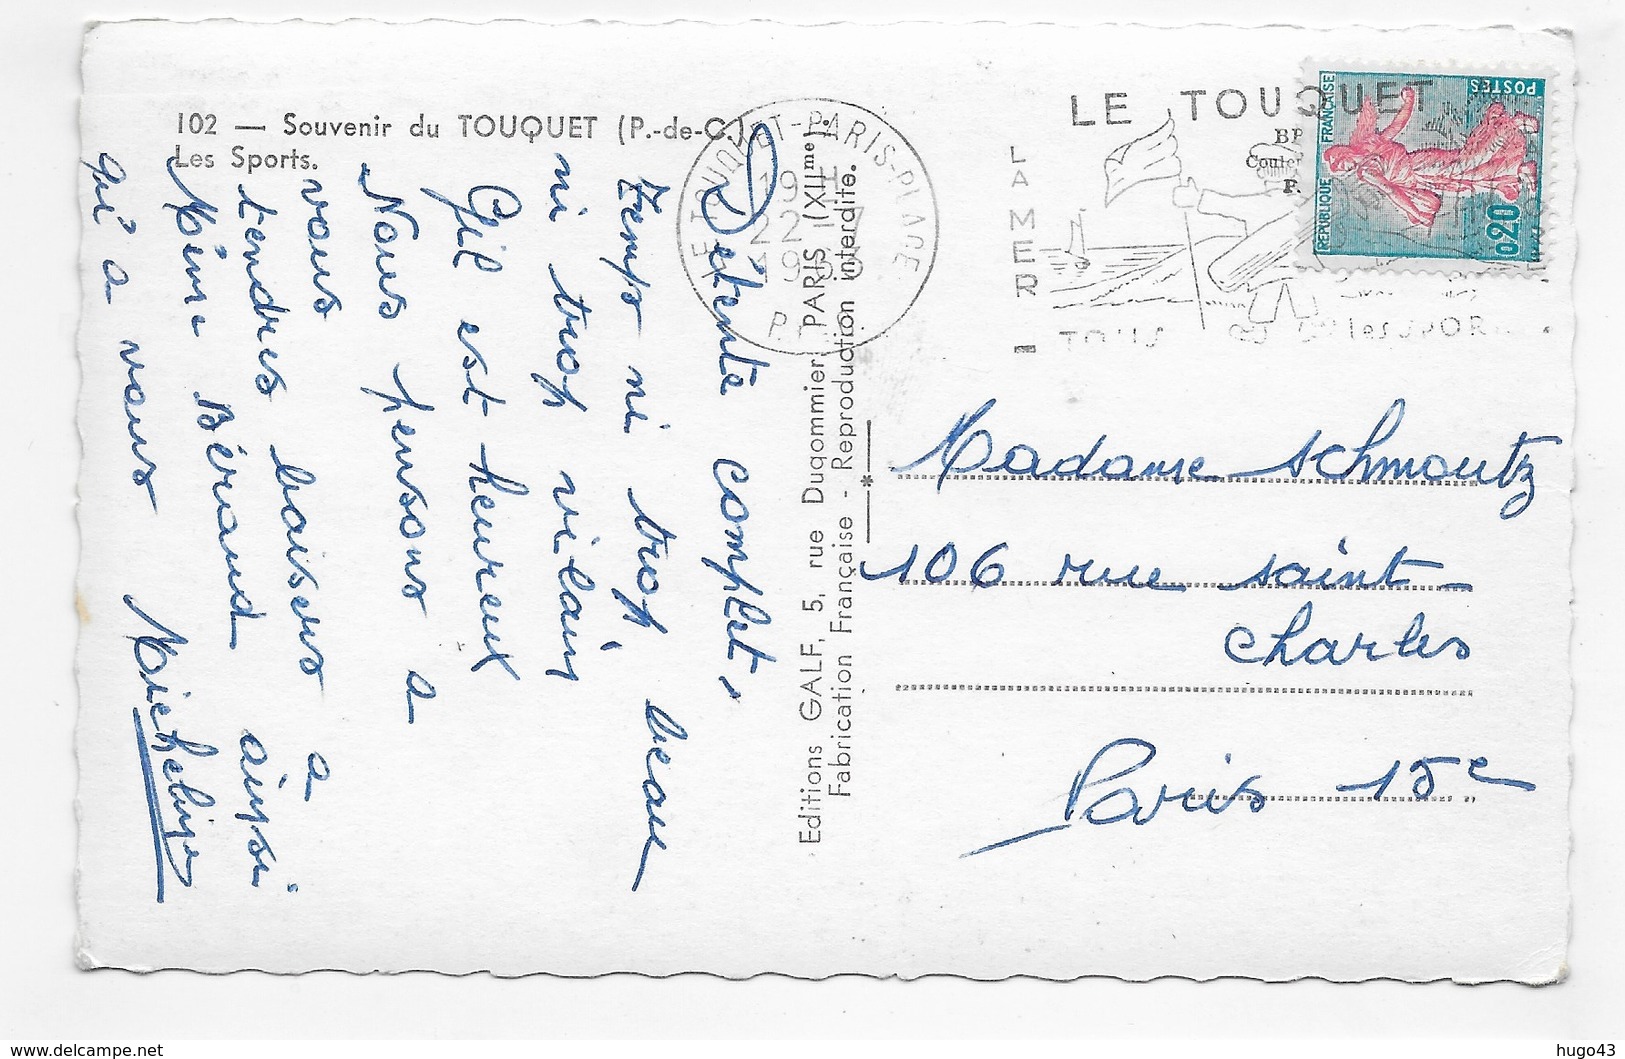 102 — Souvenir du TOUQUET (P.-de-C.)
Les Sports.
Détente complète,
temps ni trop beau
ni trop vilain
Gil est heureux
Nous pensons à
vous
tendres baisers à
Mème Béraud ainsi
qu'à vous Micheline
Editions GALF, 5, rue Dugommier, PARIS (XIIme)
Fabrication Française - Reproduction interdite.
LE TOUQUET-PARIS-PLAGE
19 H
22 -7
P.
LE TOUQUET
LA MER -
TOUS les SPOR
REPUBLIQUE FRANÇAISE
POSTES
0,20
Madame Schmoutz
106 rue saint-
Charles
Paris 15e
delcampe.net
hugo43